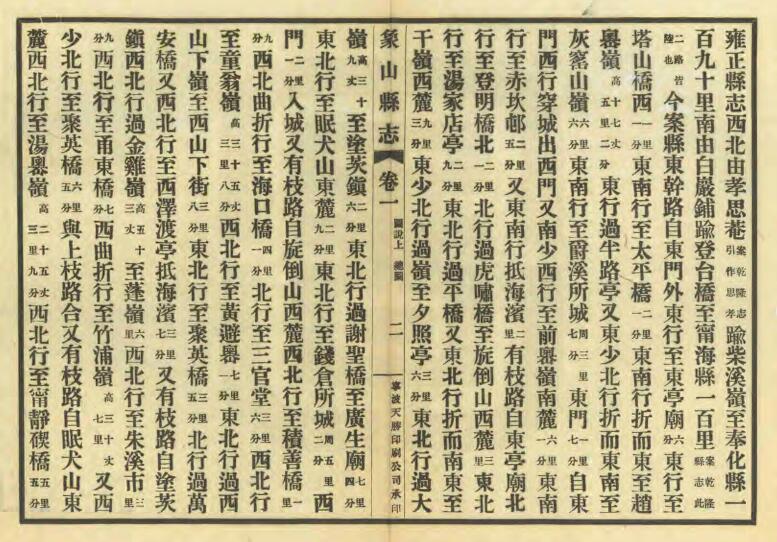 雍正縣志西北由孝思菴案乾隆志引作思孝踰柴溪嶺至奉化縣一
百九十里南由白巖鋪踰登台橋至甯海縣一百里案乾隆縣志此
二路皆陸也今案縣東幹路自東門外東行至東亭廟六分東行至
塔山橋西一里一分東南行至太平橋二里一分東南行折而東至趙
嶴嶺高十七丈五里二分東行過半路亭又東少北行折而東南至
灰窰山嶺六里六分東南行至爵溪所城周三里七分東門一里七分自東
門西行穿城出西門又南少西行至前嶴嶺南麓一里六分東南
行至赤坎邨二里五分又東南行抵海濱二里有枝路自東亭廟北
行至登明橋北二里一分東北行過虎嘯橋至旋倒山西麓三里東北
行至湯家店亭二里九分東北行過平橋又東北行折而南東至
干嶺西麓九里三分東少北行過嶺至夕照亭三里六分東北行過大
象山縣志 卷一 圖說上 總圖 二 寧波天勝印刷公司承印
嶺高三十九丈至塗茨鎮二里六分東北行過謝聖橋至廣生廟七里四分
東北行至眠犬山東麓二里九分東北行至錢倉所城周五里二分西
門二里一分入城又有枝路自旋倒山西麓西北行至積善橋一里
九分西北曲折行至海口橋四里一分北行至三官堂三里六分西北行
至童翁嶺高三十五丈三里八分西北行至黃避嶴七里一分東北行過西
山下嶺至西山下街三里八分東北行至聚英橋三里五分北行過萬
安橋又西北行至西澤渡亭抵海濱三里七分又有枝路自塗茨
鎮西北行過金雞嶺高五十三丈至蓬嶺六里西北行至朱溪市三里
九分西北行至甬東橋七分西曲折行至竹浦嶺高三十丈七里又西
少北行至聚英橋六里五分與上枝路合又有枝路自眠犬山東
麓西北行至湯嶴嶺高二十五丈三里九分西北行至甯靜碶橋五里五分